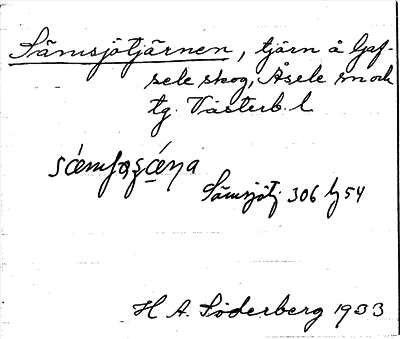 Sämsjötjärnen, tjärn å Gaf-
sele skog, Åsele sn och
tg. Västerb. l.
Sämsjötj. 306 Ig 54
H A. Söderberg 1933